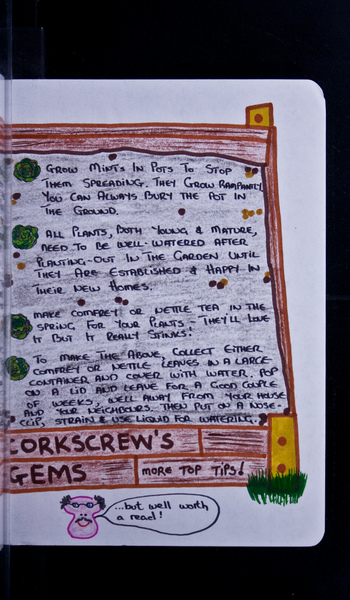 GROW MINTS IN POTS TO STOP
THEM SPREADING. THEY GROW RAMPANTLY.
YOU CAN ALWAYS BURY THE POT IN
THE GROUND.
ALL PLANTS, BOTH YOUNG & MATURE,
NEED TO BE WELL-WATERED AFTER
PLANTING-OUT IN THE GARDEN UNTIL
THEY ARE ESTABLISHED & HAPPY IN
THEIR NEW HOMES.
MAKE COMFREY OR NETTLE TEA IN THE
SPRING FOR YOUR PLANTS - THEY'LL LOVE
IT BUT IT REALLY STINKS!
TO MAKE THE ABOVE, COLLECT EITHER
COMFREY OR NETTLE LEAVES IN A LARGE
CONTAINER AND COVER WITH WATER. POP
ON A LID AND LEAVE FOR A GOOD COUPLE
OF WEEKS, WELL AWAY FROM YOUR HOUSE
AND YOUR NEIGHBOURS. THEN PUT ON A NOSE-
CLIP, STRAIN & USE LIQUID FOR WATERING.
CORKSCREW'S
GEMS
MORE TOP TIPS!
...but well worth
a read!